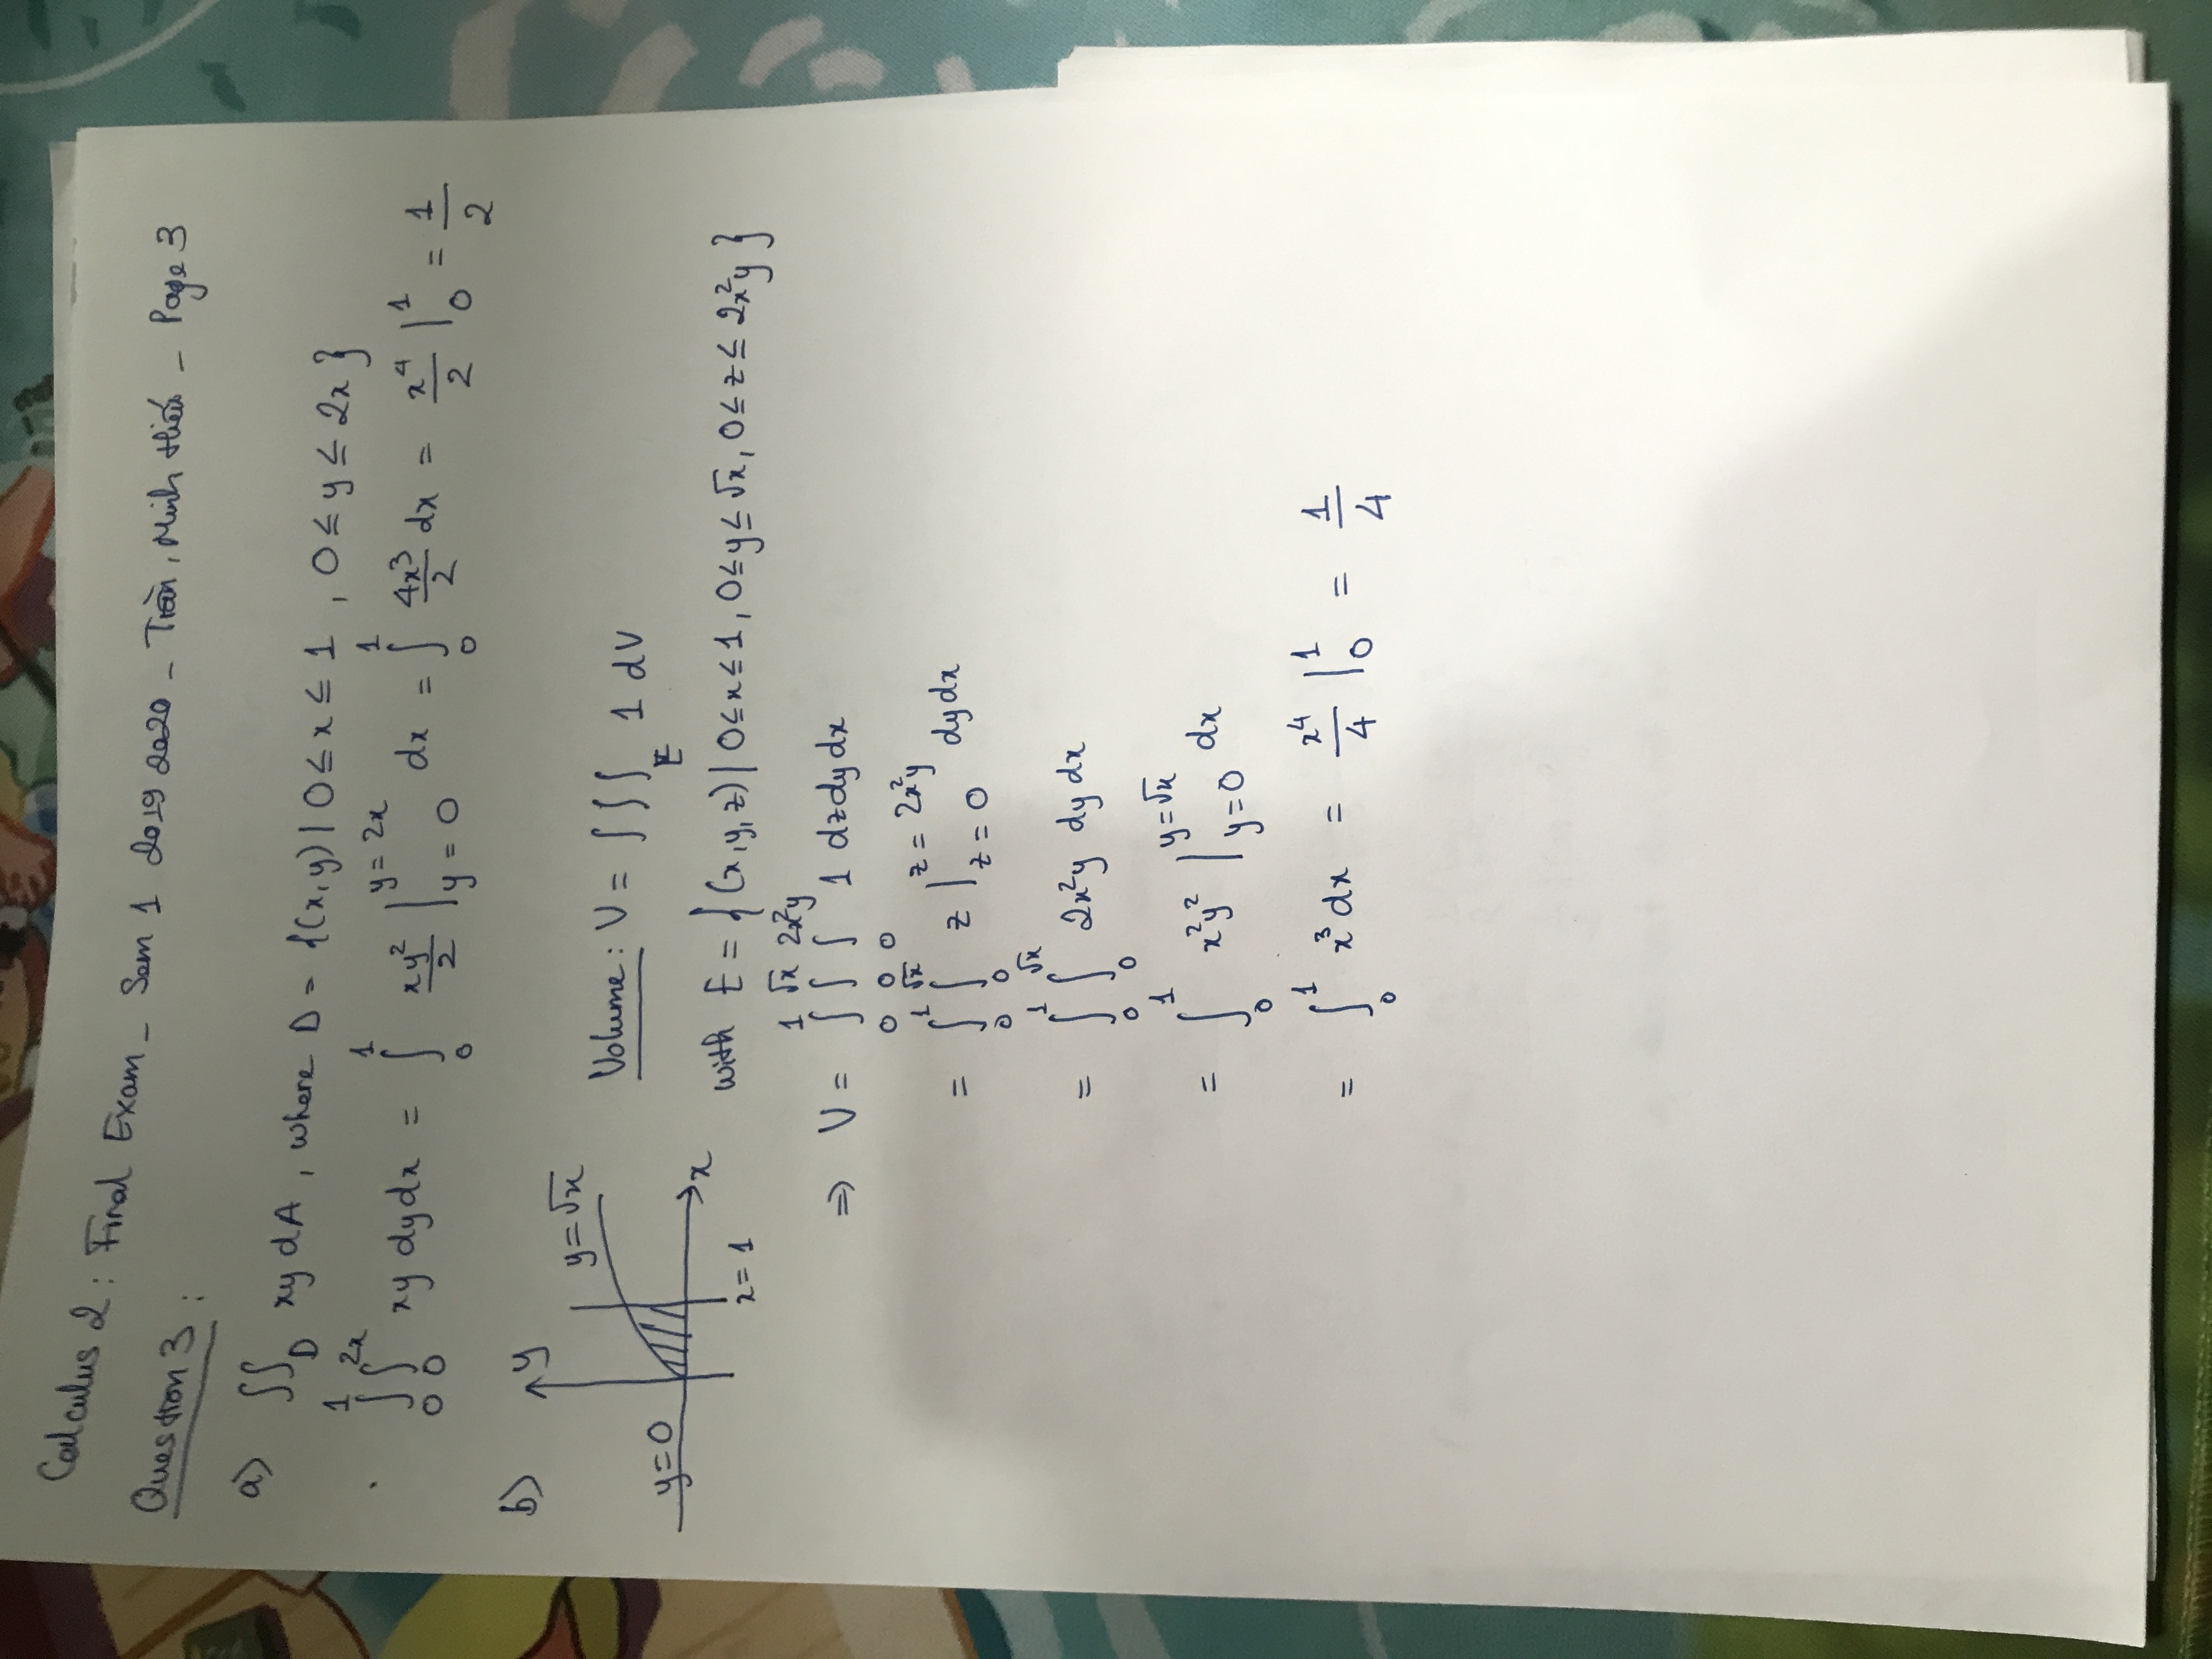 Calculus 2: Final Exam - Sem 1 2019 2020 - Trần, Minh Hiếu - Page 3
Question 3:
a) ∬_D xy dA, where D = {(x,y) | 0 ≤ x ≤ 1, 0 ≤ y ≤ 2x}
∫_0^1 ∫_0^{2x} xy dy dx = ∫_0^1 xy²/2 |_{y=0}^{y=2x} dx = ∫_0^1 4x³/2 dx = x⁴/2 |_0^1 = 1/2
b)
y
y=√x
y=0
x
x=1
Volume: V = ∭_E 1 dV
with E = {(x,y,z) | 0≤x≤1, 0≤y≤√x, 0≤z≤2x²y}
⇒ V = ∫_0^1 ∫_0^{√x} ∫_0^{2x²y} 1 dz dy dx
= ∫_0^1 ∫_0^{√x} z |_{z=0}^{z=2x²y} dy dx
= ∫_0^1 ∫_0^{√x} 2x²y dy dx
= ∫_0^1 x²y² |_{y=0}^{y=√x} dx
= ∫_0^1 x³ dx = x⁴/4 |_0^1 = 1/4